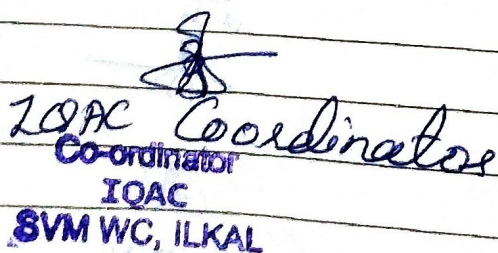 IQAC Coordinator
Co-ordinator
IQAC
SVM WC, ILKAL